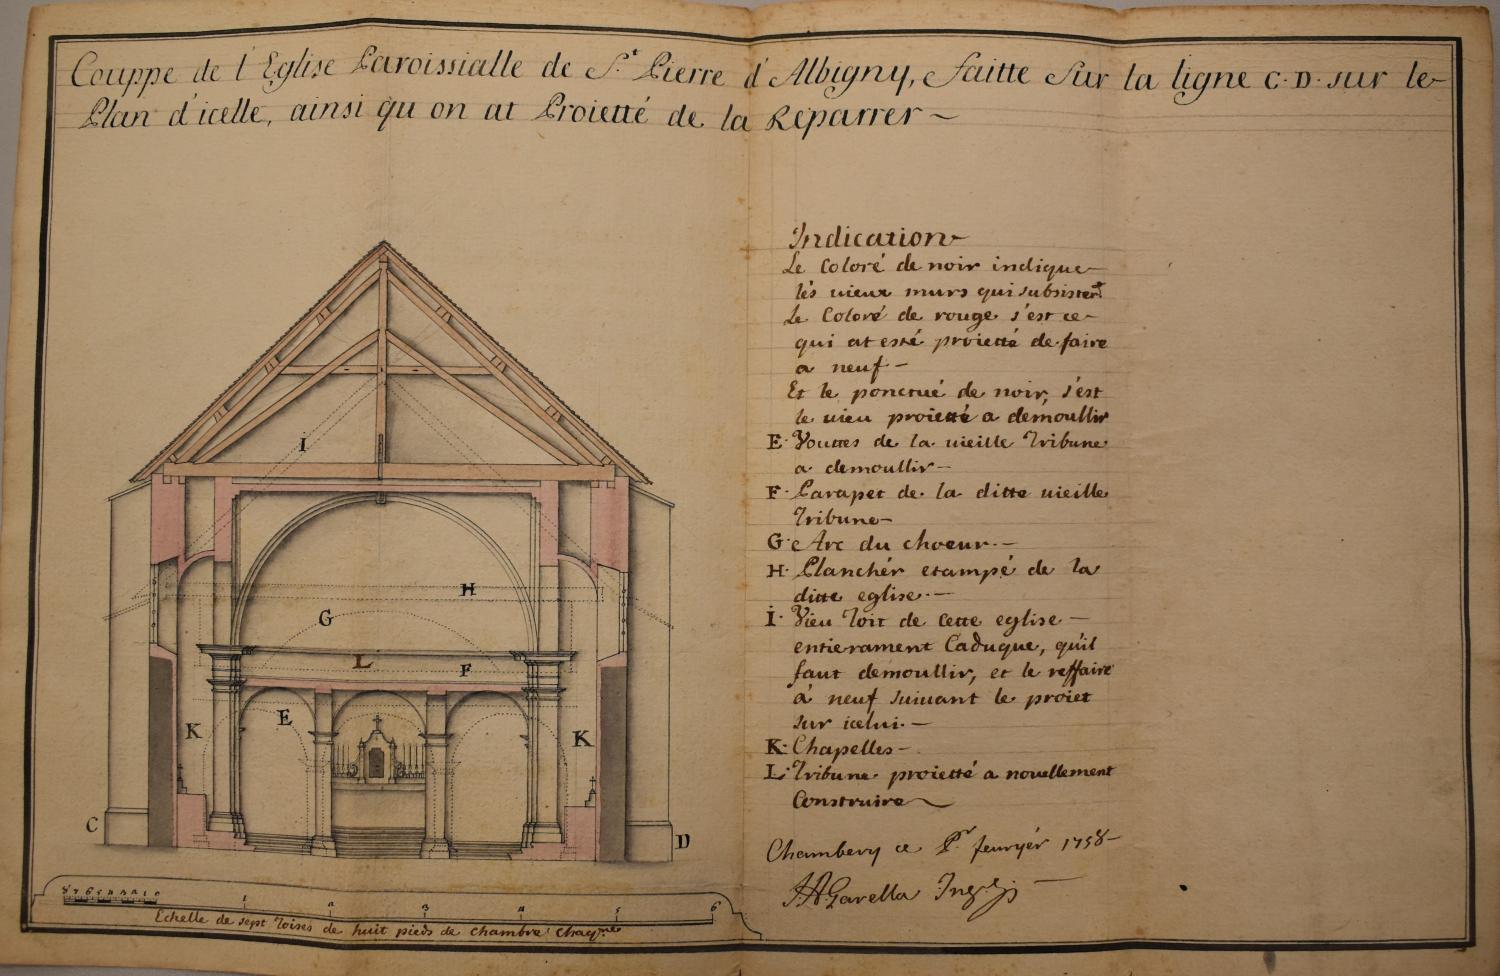 Couppe de l'Eglise Paroissialle de S.t Pierre d'Albigny, faitte sur la ligne C·D· sur le
Plan d'icelle, ainsi qu on at Proietté de la Reparrer
I
H
G
L
F
E
K
K
C
D
Indication
Le Coloré de noir indique
lés vieux murs qui subsistent
Le Coloré de rouge s'est ce
qui at esté proietté de faire
a neuf
Et le ponctué de noir, s'est
le vieu proietté a demoullir
E· Vouttes de la vieille Tribune
a demoullir
F· Parapet de la ditte vieille
Tribune
G· Arc du choeur
H· Planchér etampé de la
ditte eglise
I· Vieu Toit de cette eglise
entierament Caduque, qu'il
faut demoullir, et le reffaire
à neuf suivant le proiet
sur icelui
K· Chapelles
L· Tribune proietté a nouellement
Construire
Chambery ce P.r feuryér 1758
Garella
1 2 3 4 5 6
Echelle de sept Toises de huit pieds de chambre chaq.ne